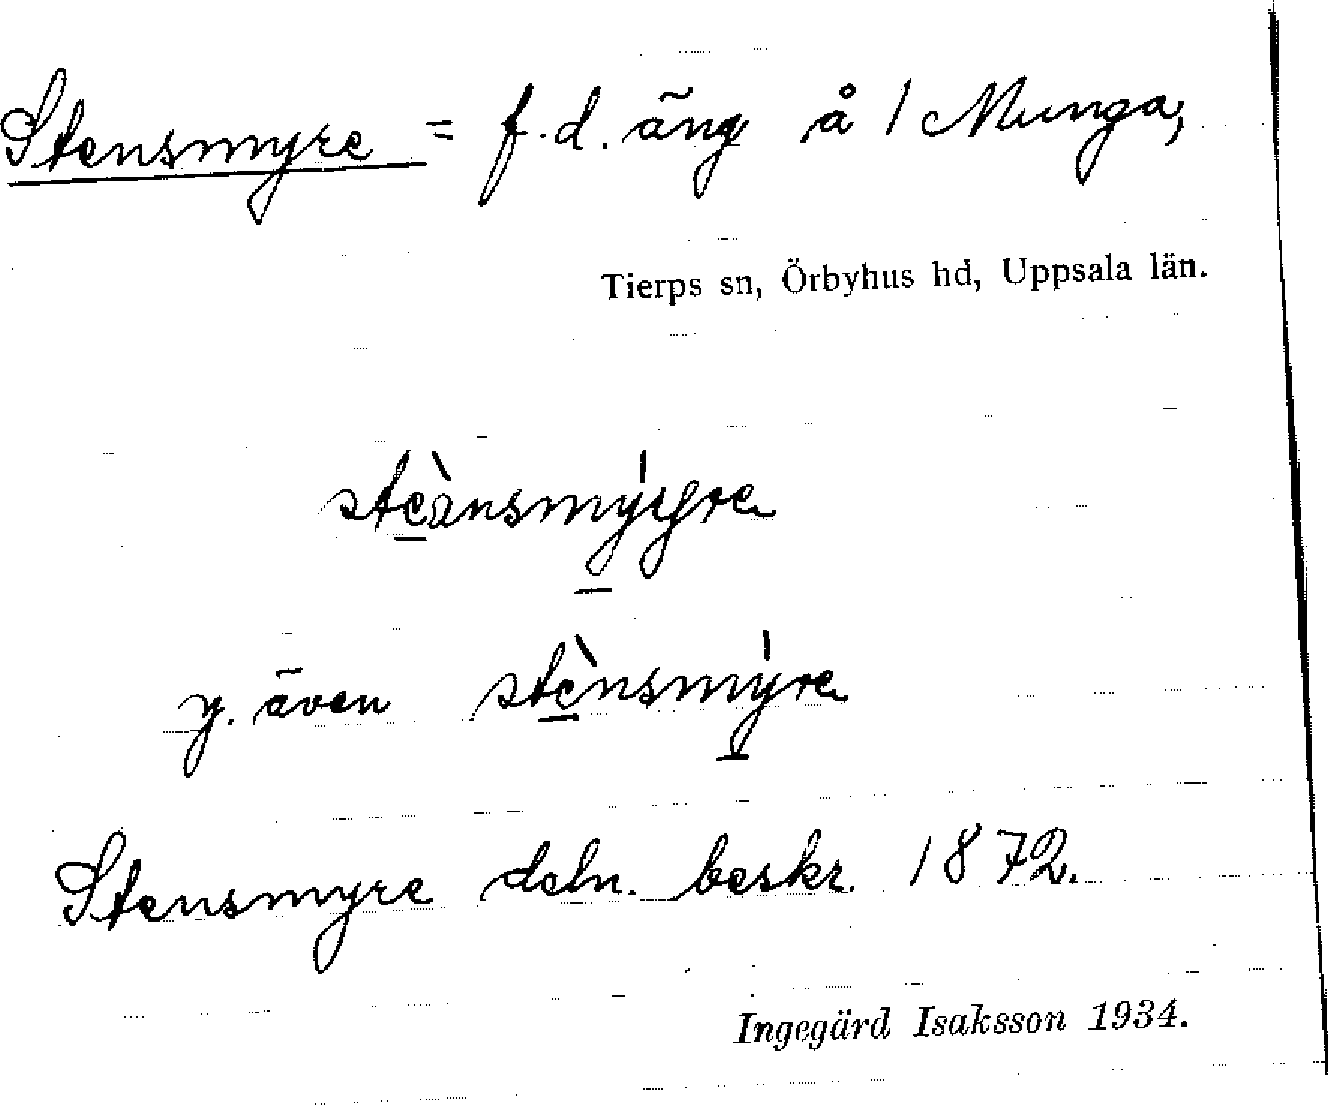 Stensmyre = f.d. äng å / Munga,
Tierps sn, Örbyhus hd, Uppsala län.
y. även
Stensmyre deln. beskr. 1872.
Ingegärd Isaksson 1934.